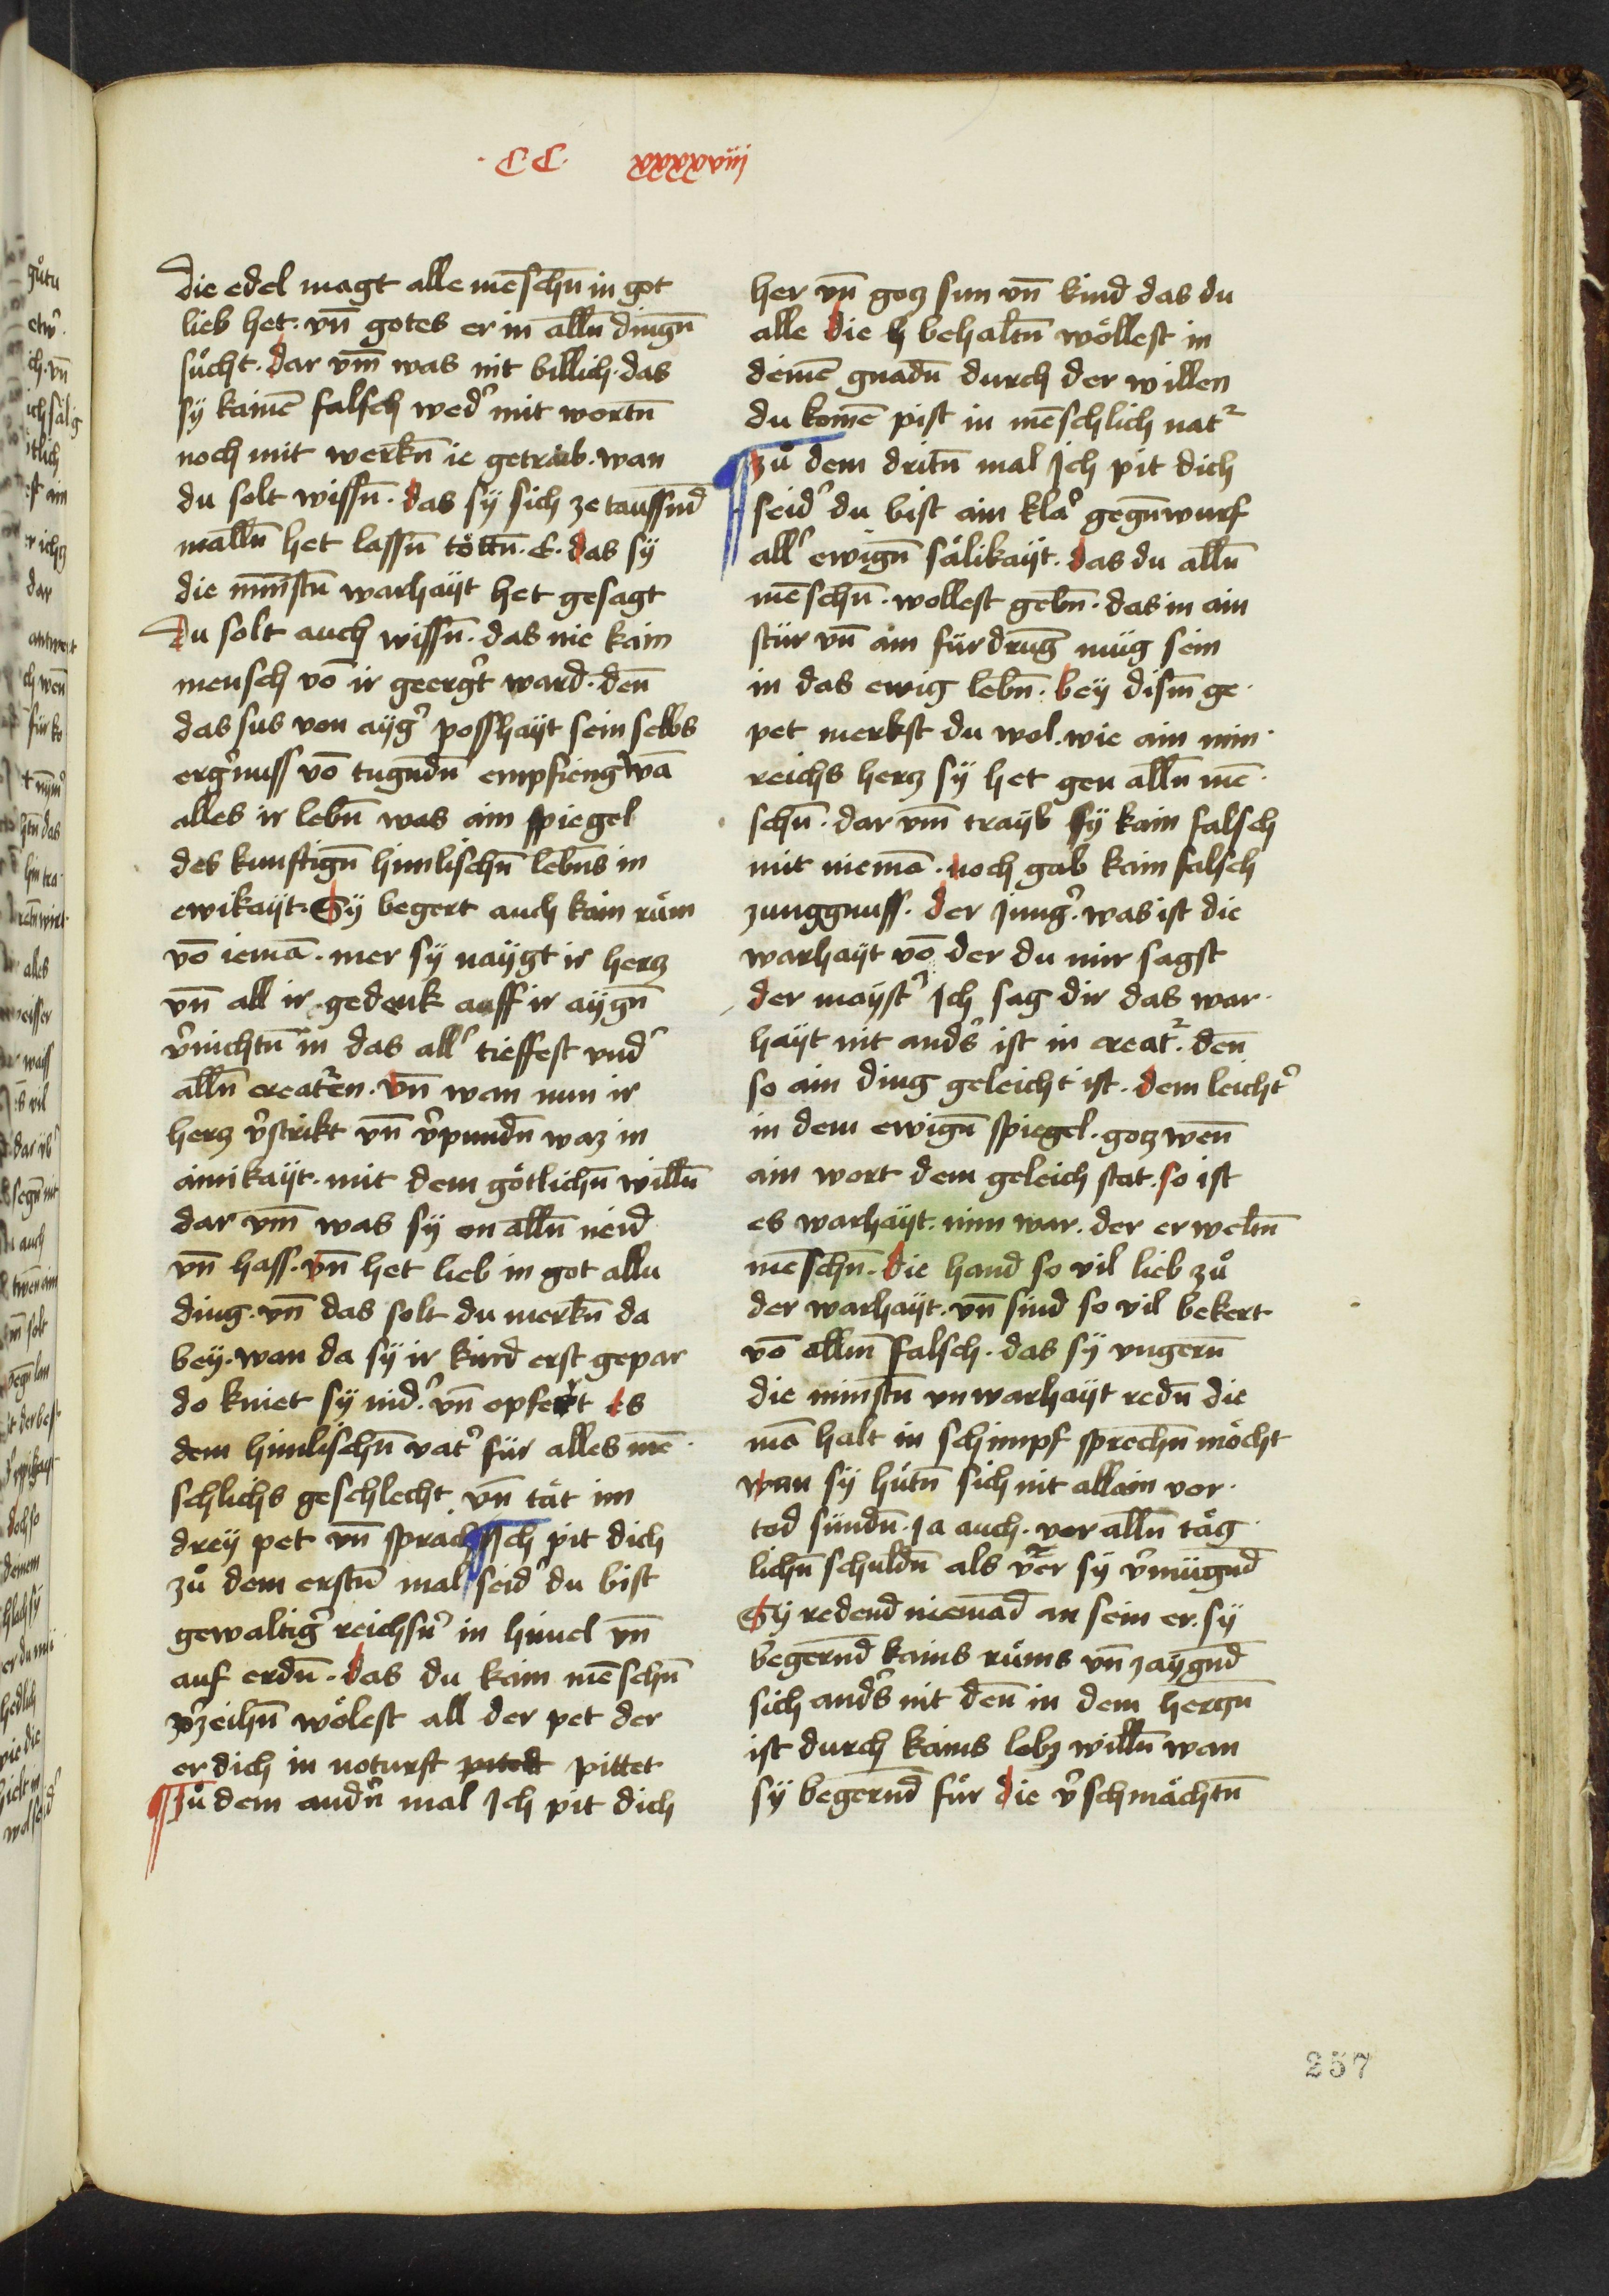 ·CC· xxxxxviij
die edel magt alle mēschn̄ in got
lieb het· vn̄ gotes er in alln̄ dingn̄
sůcht· dar vm̄ was nit billich· das
sy kainē falsch wed᾽ mit wortn̄
noch mit werkn̄ ie getraib· wan
du solt wissn̄· das sÿ sich ze taussn̄d
malln̄ het lassn̄ tötn̄· E· das sÿ
die minstn̄ warhaÿt het gesagt
Du solt auch wissn̄· das nie kain
mensch vō ir geerg᾽t ward· den̄
das sus von aÿg᾽ posshaÿt sein selbs
erg᾽nuss vō tugn̄dn̄ empfieng wā
alles ir lebn̄ was ain spiegel
des kunftign̄ himlischn̄ lebn̄s in
ewikaÿt· Sÿ begert auch kain rům
vō iemā· mer sÿ naÿgt ir hertz
vn̄ all ir gedenk auff ir aÿgn̄
v᾽nichtn̄ in das all᾽ tieffest vnd᾽
alln̄ creat²en· vn̄ wan nun ir
hertz v᾽strikt vn̄ v᾽pundn̄ waz in
ainikaÿt· mit dem götlichn̄ willn̄
dar vm̄ was sÿ on alln̄ neid
vn̄ hass· vn̄ het lieb in got allu
ding· vn̄ das solt du merkn̄ da
bey· wan da sÿ ir kind erst gepar
do kniet sÿ nid᾽· vn̄ opfert es
dem himlischn̄ vat᾽ für alles mē·
schlichs geschlecht· vn̄ tät im
dreÿ pet vn̄ sprach Ich pit dich
zů dem erstn̄ mal seid᾽ du bist
gewaltig᾽ reichsn᾽ in himel vn̄
auf erdn̄· das du kain mēschn̄
v᾽zeihn̄ wölest all der pet der
er dich in noturft pittet pittet
Zů dem andn᾽ mal Ich pit dich
her vn̄ gotz sun vn̄ kind das du
alle die h behaltn̄ wöllest in
deinē gnadn̄ durch der willen
du komē pist in mēschlich nat²
Zů dem dritn̄ mal Ich pit dich
seid᾽ du bist ain kla᾽ gegn̄wurf
all᾽ ewign̄ sälikaÿt· das du alln̄
mēschn̄· wollest gebn̄· das in ain
stür vn̄ ain fürdrung müg sein
in das ewig lebn̄· beÿ dism̄ ge·
pet merkst du wol· wie ain min·
reichs hertz sÿ het gen alln̄ mē·
schn̄· dar vm̄ traÿb sÿ kain falsch
mit niemā· noch gab kain falsch
zungknuss· der Jung᾽· was ist die
warhaÿt vō der du mir sagst
der maÿst᾽ Ich sag dir das war·
haÿt nit and᾽s ist in creat²· den̄
so ain ding geleicht ist· dem leicht᾽
in dem ewign̄ spiegel· gotz wen̄
ain wort dem geleich stat· so ist
es warhaÿt· nim war· der erweltn̄
mēschn̄· die hand so vil lieb zů
der warhaÿt· vn̄ sind so vil bekert
vō allm̄ falsch· das sÿ vngern̄
die minstn̄ vnwarhaÿt redn̄ die
mā halt in schimpf sprechn̄ möcht
wan sÿ hütn̄ sich nit allain vor·
tod sündn̄· Ia auch· vor alln̄ täg·
lichn̄ schuldn̄ als v᾽er sÿ v᾽mügn̄d
Sÿ redend niemād an sein er· sÿ
begern̄d kains růms vn̄ zaÿgn̄d
sich and᾽s nit den̄ in dem hertzn̄
ist durch kains lobz willn̄ wan
sÿ begern̄d für die v᾽schmächtn̄
257